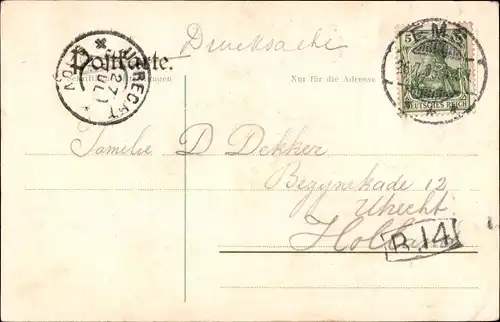 Drucksache
Postkarte.
Nur für die Adresse
UTRECHT
27
JUL
EMS
5
5
DEUTSCHES REICH
Familie D Dekker
Begynekade 12
Utrecht
Holland
B.14